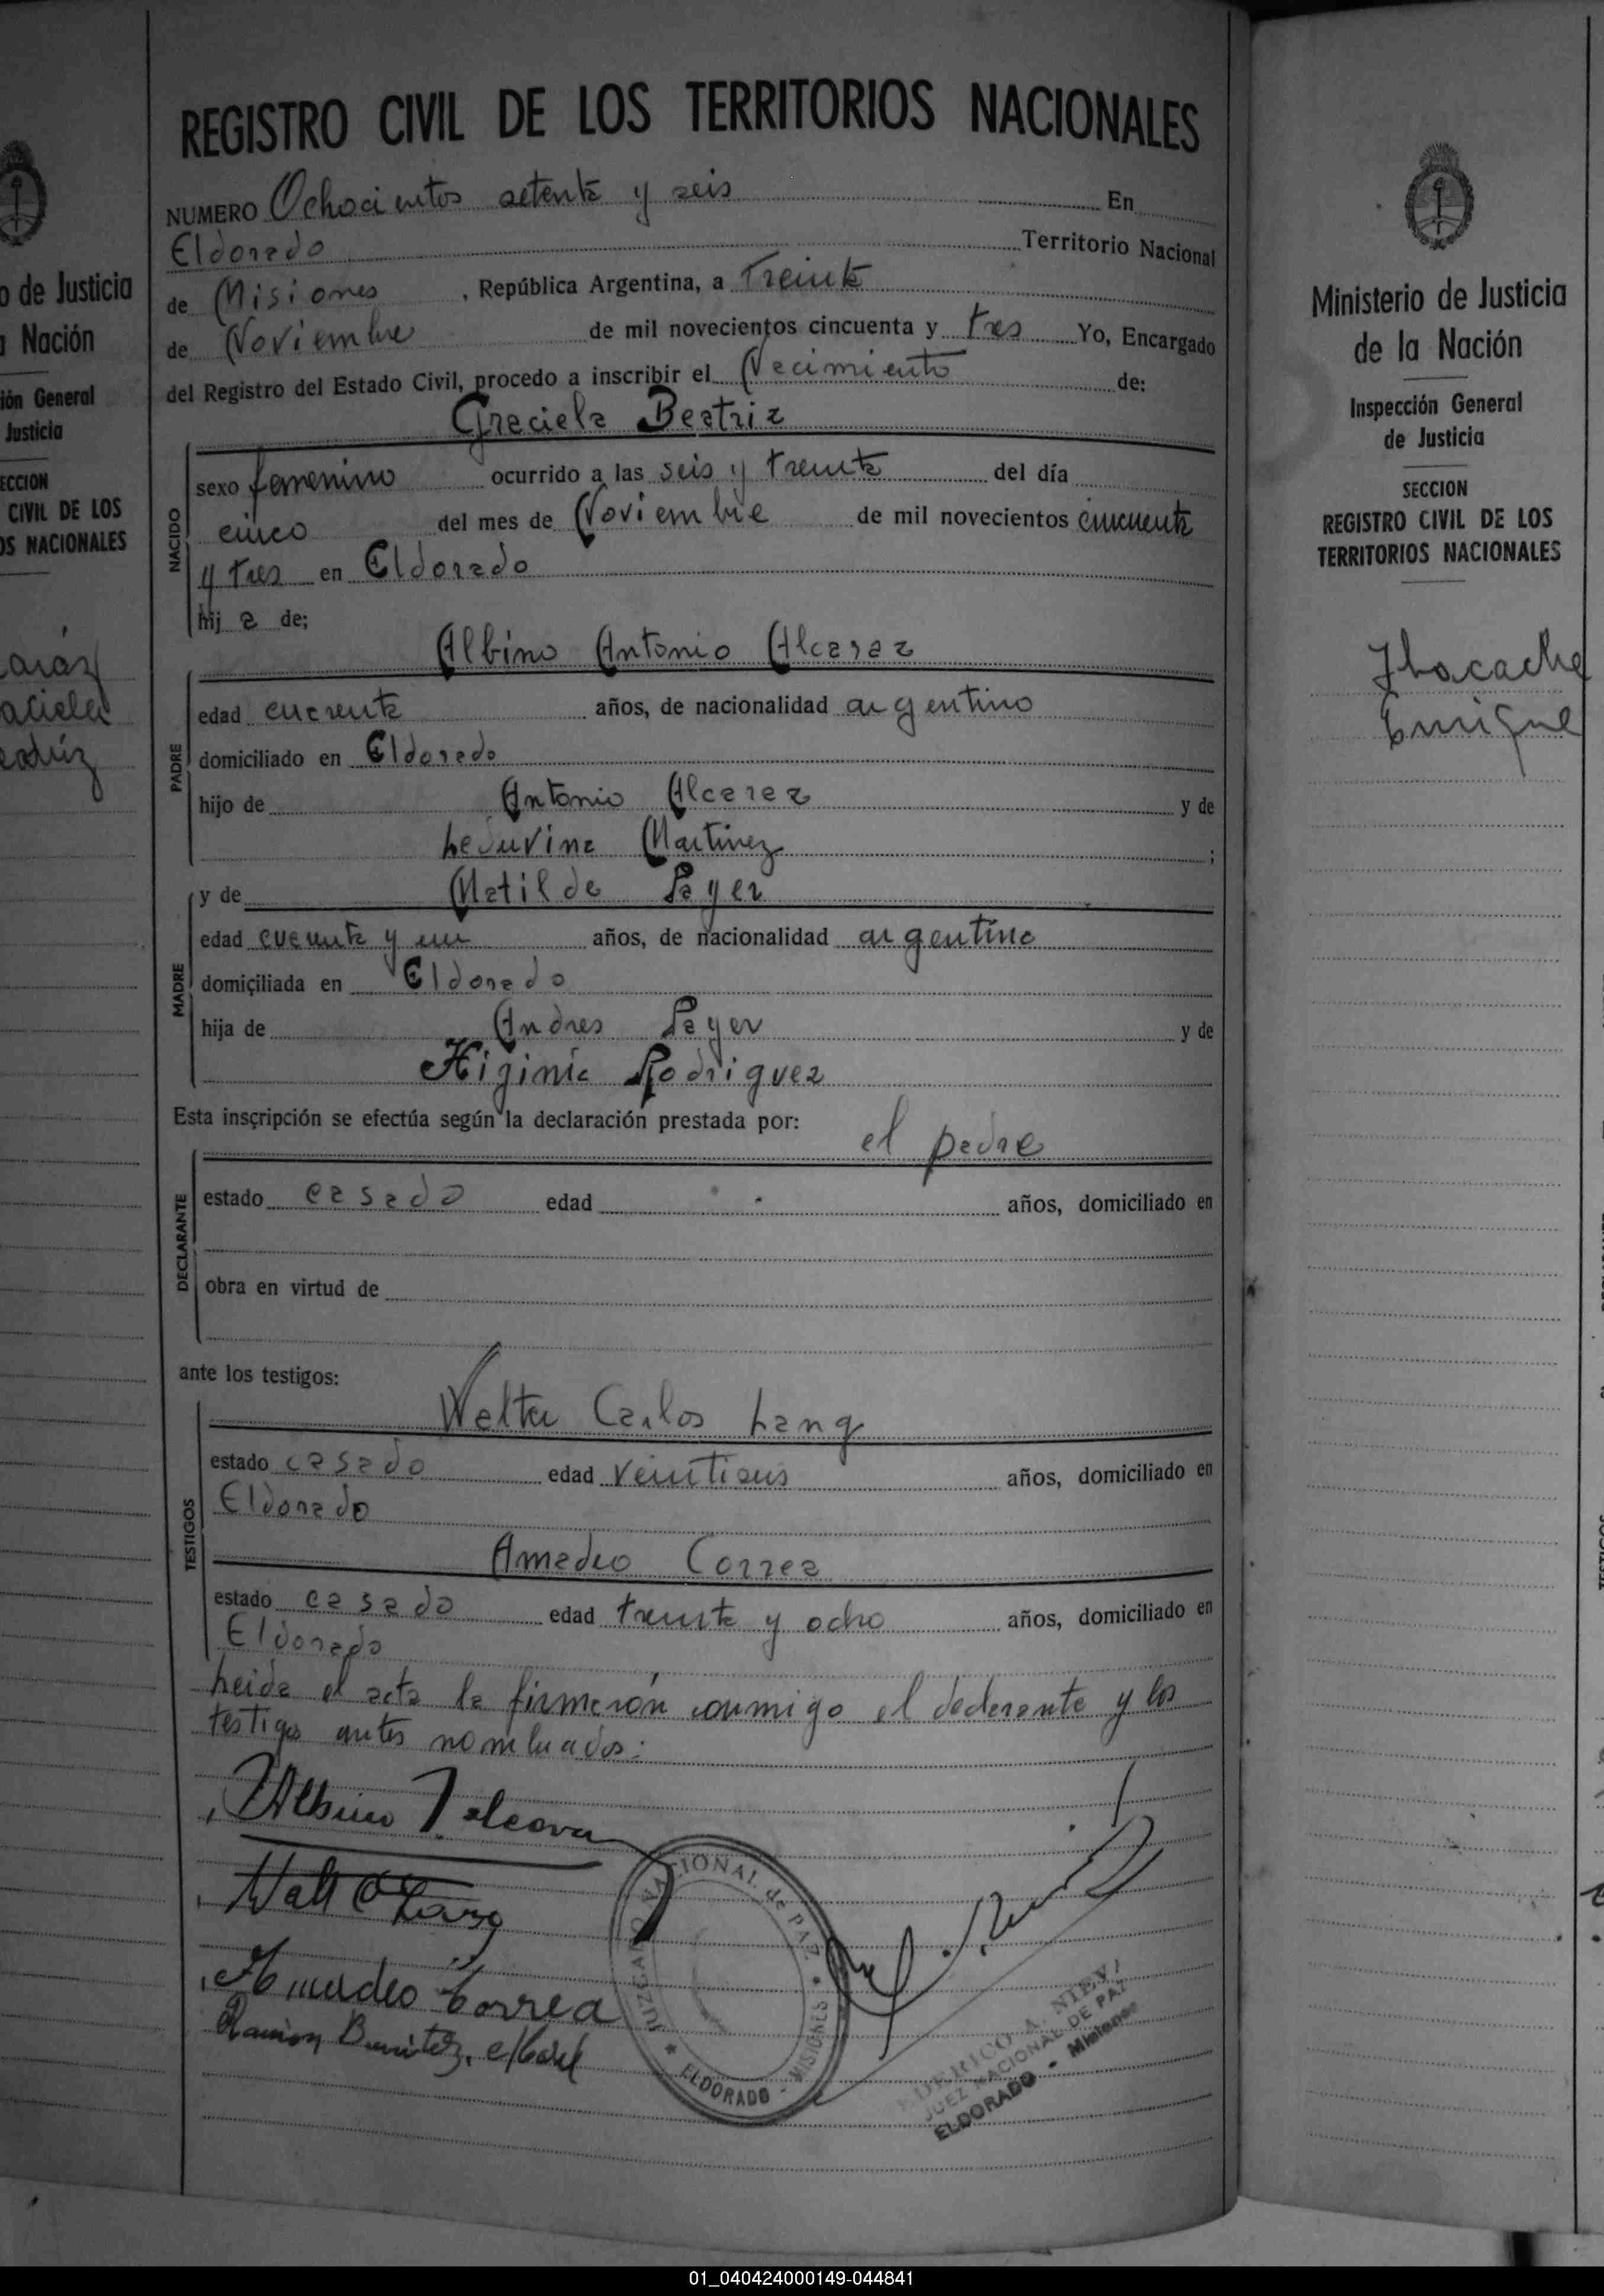 REGISTRO CIVIL DE LOS TERRITORIOS NACIONALES
NUMERO Ochocientos setenta y seis En
Eldorado Territorio Nacional
de Misiones, República Argentina, a Treinta
de Noviembre de mil novecientos cincuenta y tres Yo, Encargado
del Registro del Estado Civil, procedo a inscribir el Nacimiento de:
Graciela Beatriz
NACIDO
sexo femenino ocurrido a las seis y treinta del día
cinco del mes de Noviembre de mil novecientos cincuenta
y tres en Eldorado
hij a de;
Albino Antonio Alcaraz
PADRE
edad cuarenta años, de nacionalidad argentino
domiciliado en Eldorado
hijo de Antonio Alcaraz y de
Laduvina Martinez ;
y de Matilde Payer
MADRE
edad cuarenta y un años, de nacionalidad argentina
domiciliada en Eldorado
hija de Andres Payer y de
Higinia Rodriguez
Esta inscripción se efectúa según la declaración prestada por:
el padre
DECLARANTE
estado casado edad años, domiciliado en
obra en virtud de
ante los testigos:
Walter Carlos Lang
TESTIGOS
estado casado edad veintiseis años, domiciliado en
Eldorado
Amadeo Correa
estado casado edad treinta y ocho años, domiciliado en
Eldorado
Leida el acta la firmarón conmigo el declarante y los
testigos antes nombrados:
Albino
Walt C Lang
Amadeo Correa
Ramon Benitez,
JUZGADO NACIONAL de PAZ
ELDORADO - MISIONES
A. NIEV
JUEZ NACIONAL DE PAZ
ELDORADO - Misiones
o de Justicia
Nación
ión General
Justicia
ECCION
CIVIL DE LOS
OS NACIONALES
caraz
aciela
eatriz
Ministerio de Justicia
de la Nación
Inspección General
de Justicia
SECCION
REGISTRO CIVIL DE LOS
TERRITORIOS NACIONALES
Enrique
01_040424000149-044841